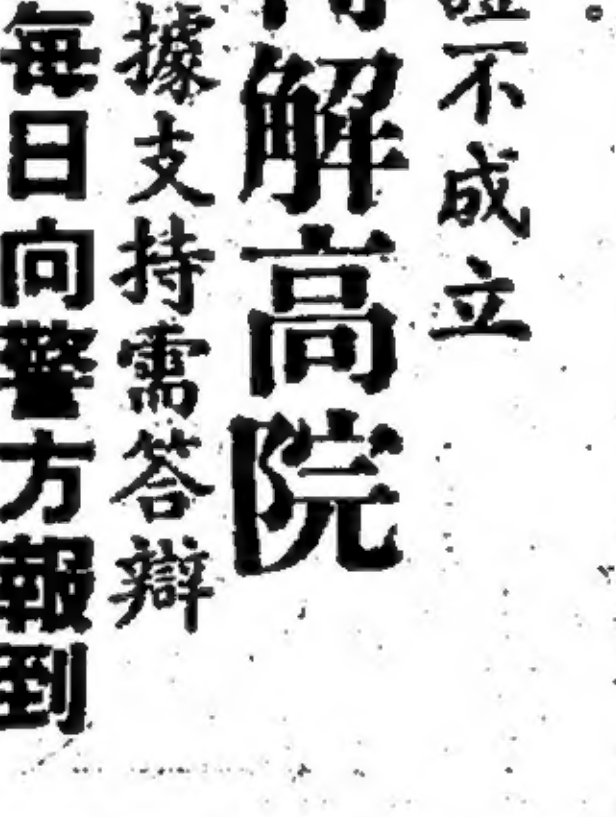 不成立
解高院
據支持需答辯
每日向警方報到